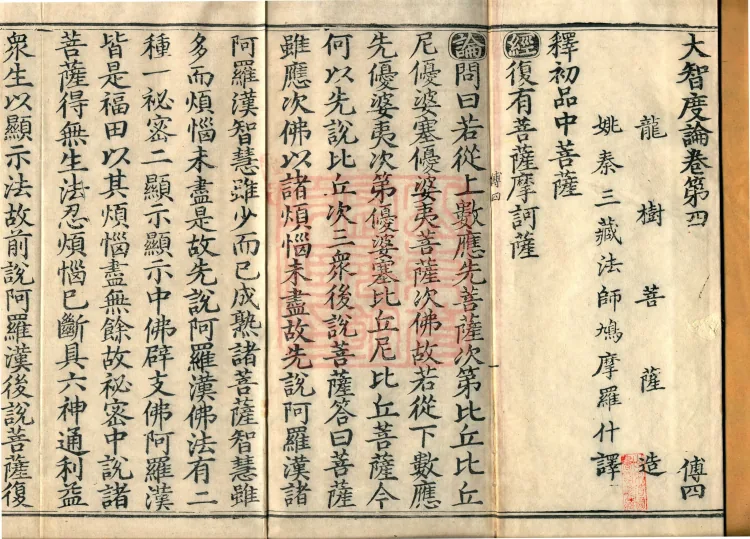 大智度論卷第四 傅四
龍樹菩薩造
姚秦三藏法師鳩摩羅什譯
釋初品中菩薩
經復有菩薩摩訶薩
傅四
論問曰若從上數應先菩薩次第比丘比丘
尼優婆塞優婆夷菩薩次佛故若從下數應
先優婆夷次第優婆塞比丘尼比丘菩薩今
何以先說比丘次三衆後說菩薩答曰菩薩
雖應次佛以諸煩惱未盡故先說阿羅漢諸
阿羅漢智慧雖少而已成熟諸菩薩智慧雖
多而煩惱未盡是故先說阿羅漢佛法有二
種一祕密二顯示顯示中佛辟支佛阿羅漢
皆是福田以其煩惱盡無餘故祕密中說諸
菩薩得無生法忍煩惱已斷具六神通利益
衆生以顯示法故前說阿羅漢後說菩薩復